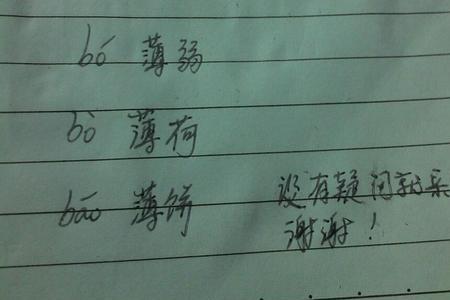 bó 薄弱
bò 薄荷
báo 薄饼 没有疑问就采
谢谢！